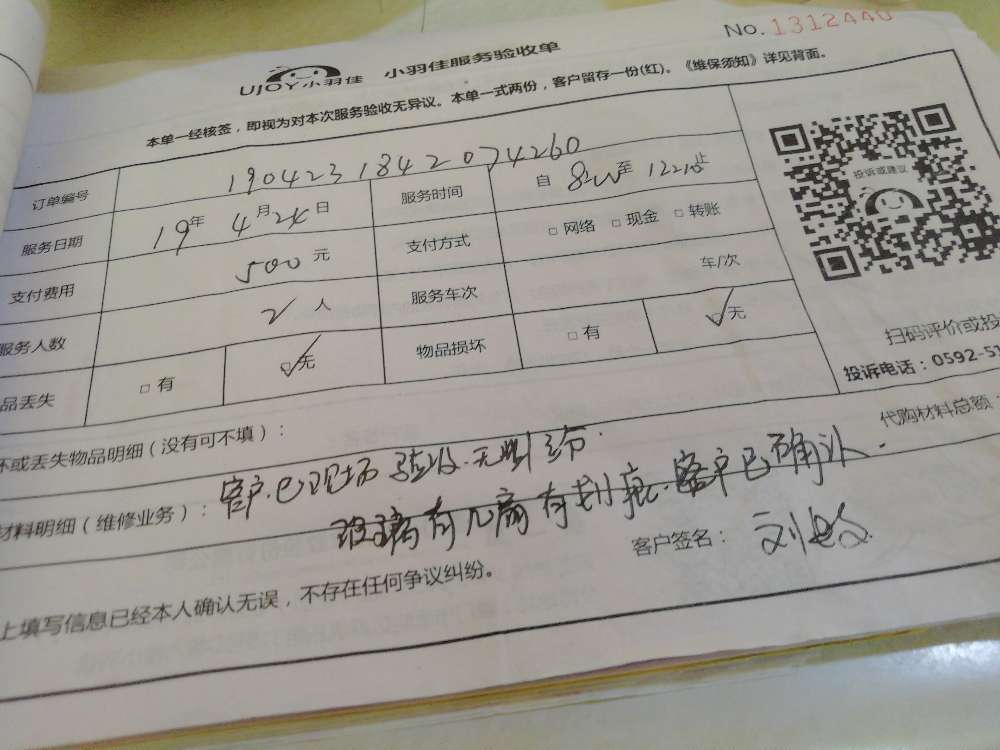 No. 1312440
UJOY小羽佳 小羽佳服务验收单
本单一经核签，即视为对本次服务验收无异议。本单一式两份，客户留存一份(红)。《维保须知》详见背面。
订单编号 1904231842074260
服务日期 19年 4月 日 服务时间 自 至 止
支付费用 500元 支付方式 □ 网络 □ 现金 □ 转账
服务人数 2人 服务车次 车/次
品丢失 □ 有 □ 无 物品损坏 □ 有 □ 无
投诉或建议
扫码评价或投
投诉电话：0592-51
坏或丢失物品明细（没有可不填）：
代购材料总额：
材料明细（维修业务）：客户已现场验收.无纠纷.
玻璃有几扇有划痕.客户已确认.
客户签名：刘
上填写信息已经本人确认无误，不存在任何争议纠纷。